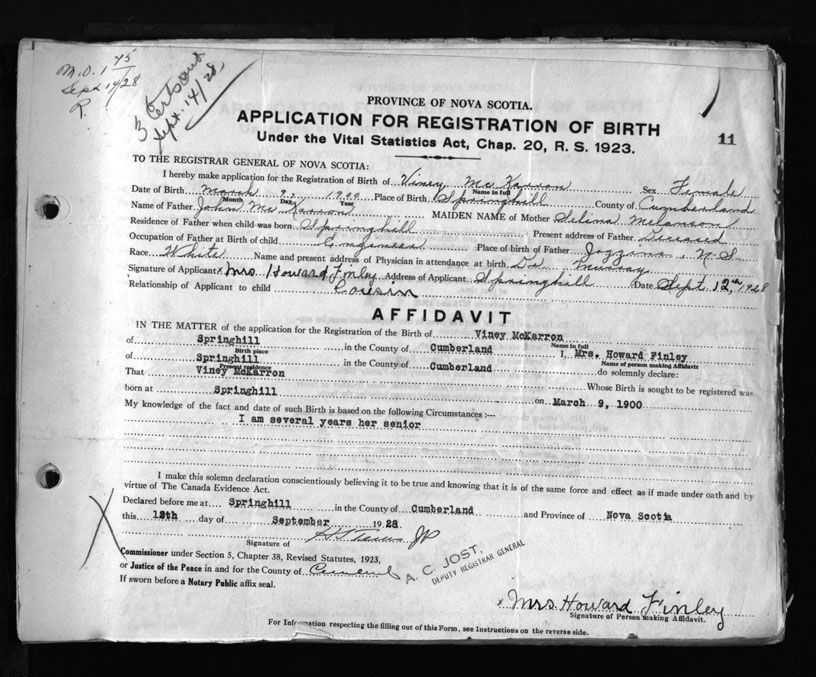 M.O. 1 75
Sept 14/28
R.
3 Certs out
Sept. 14/28.
PROVINCE OF NOVA SCOTIA.
APPLICATION FOR REGISTRATION OF BIRTH
11
Under the Vital Statistics Act, Chap. 20, R. S. 1923.
TO THE REGISTRAR GENERAL OF NOVA SCOTIA:
I hereby make application for the Registration of Birth of Viney McKarron Sex Female
Name in full
Date of Birth March 9, 1900 Place of Birth Springhill County of Cumberland
Month Day Year
Name of Father John McKarron MAIDEN NAME of Mother Selina Melanson
Residence of Father when child was born Springhill Present address of Father Deceased
Occupation of Father at Birth of child Engineer Place of birth of Father Joggins, N.S.
Race White Name and present address of Physician in attendance at birth Dr Murray
Signature of Applicant x Mrs Howard Finley Address of Applicant Springhill Date Sept 12th, 1928
Relationship of Applicant to child Cousin
AFFIDAVIT
IN THE MATTER of the application for the Registration of the Birth of Viney McKarron
Name in full
of Springhill in the County of Cumberland I, Mrs. Howard Finley
Birth place Name of person making Affidavit
of Springhill in the County of Cumberland do solemnly declare:
Present residence
That Viney McKarron Whose Birth is sought to be registered was
born at Springhill on March 9, 1900
My knowledge of the fact and date of such Birth is based on the following Circumstances :—
I am several years her senior
I make this solemn declaration conscientiously believing it to be true and knowing that it is of the same force and effect as if made under oath and by
virtue of The Canada Evidence Act.
Declared before me at Springhill in the County of Cumberland and Province of Nova Scotia
this 12th day of September 1928
Signature of JP
Commissioner under Section 5, Chapter 38, Revised Statutes, 1923,
or Justice of the Peace in and for the County of
If sworn before a Notary Public affix seal.
A. C. JOST,
DEPUTY REGISTRAR GENERAL
x Mrs. Howard Finley
Signature of Person making Affidavit.
For Information respecting the filling out of this Form, see Instructions on the reverse side.